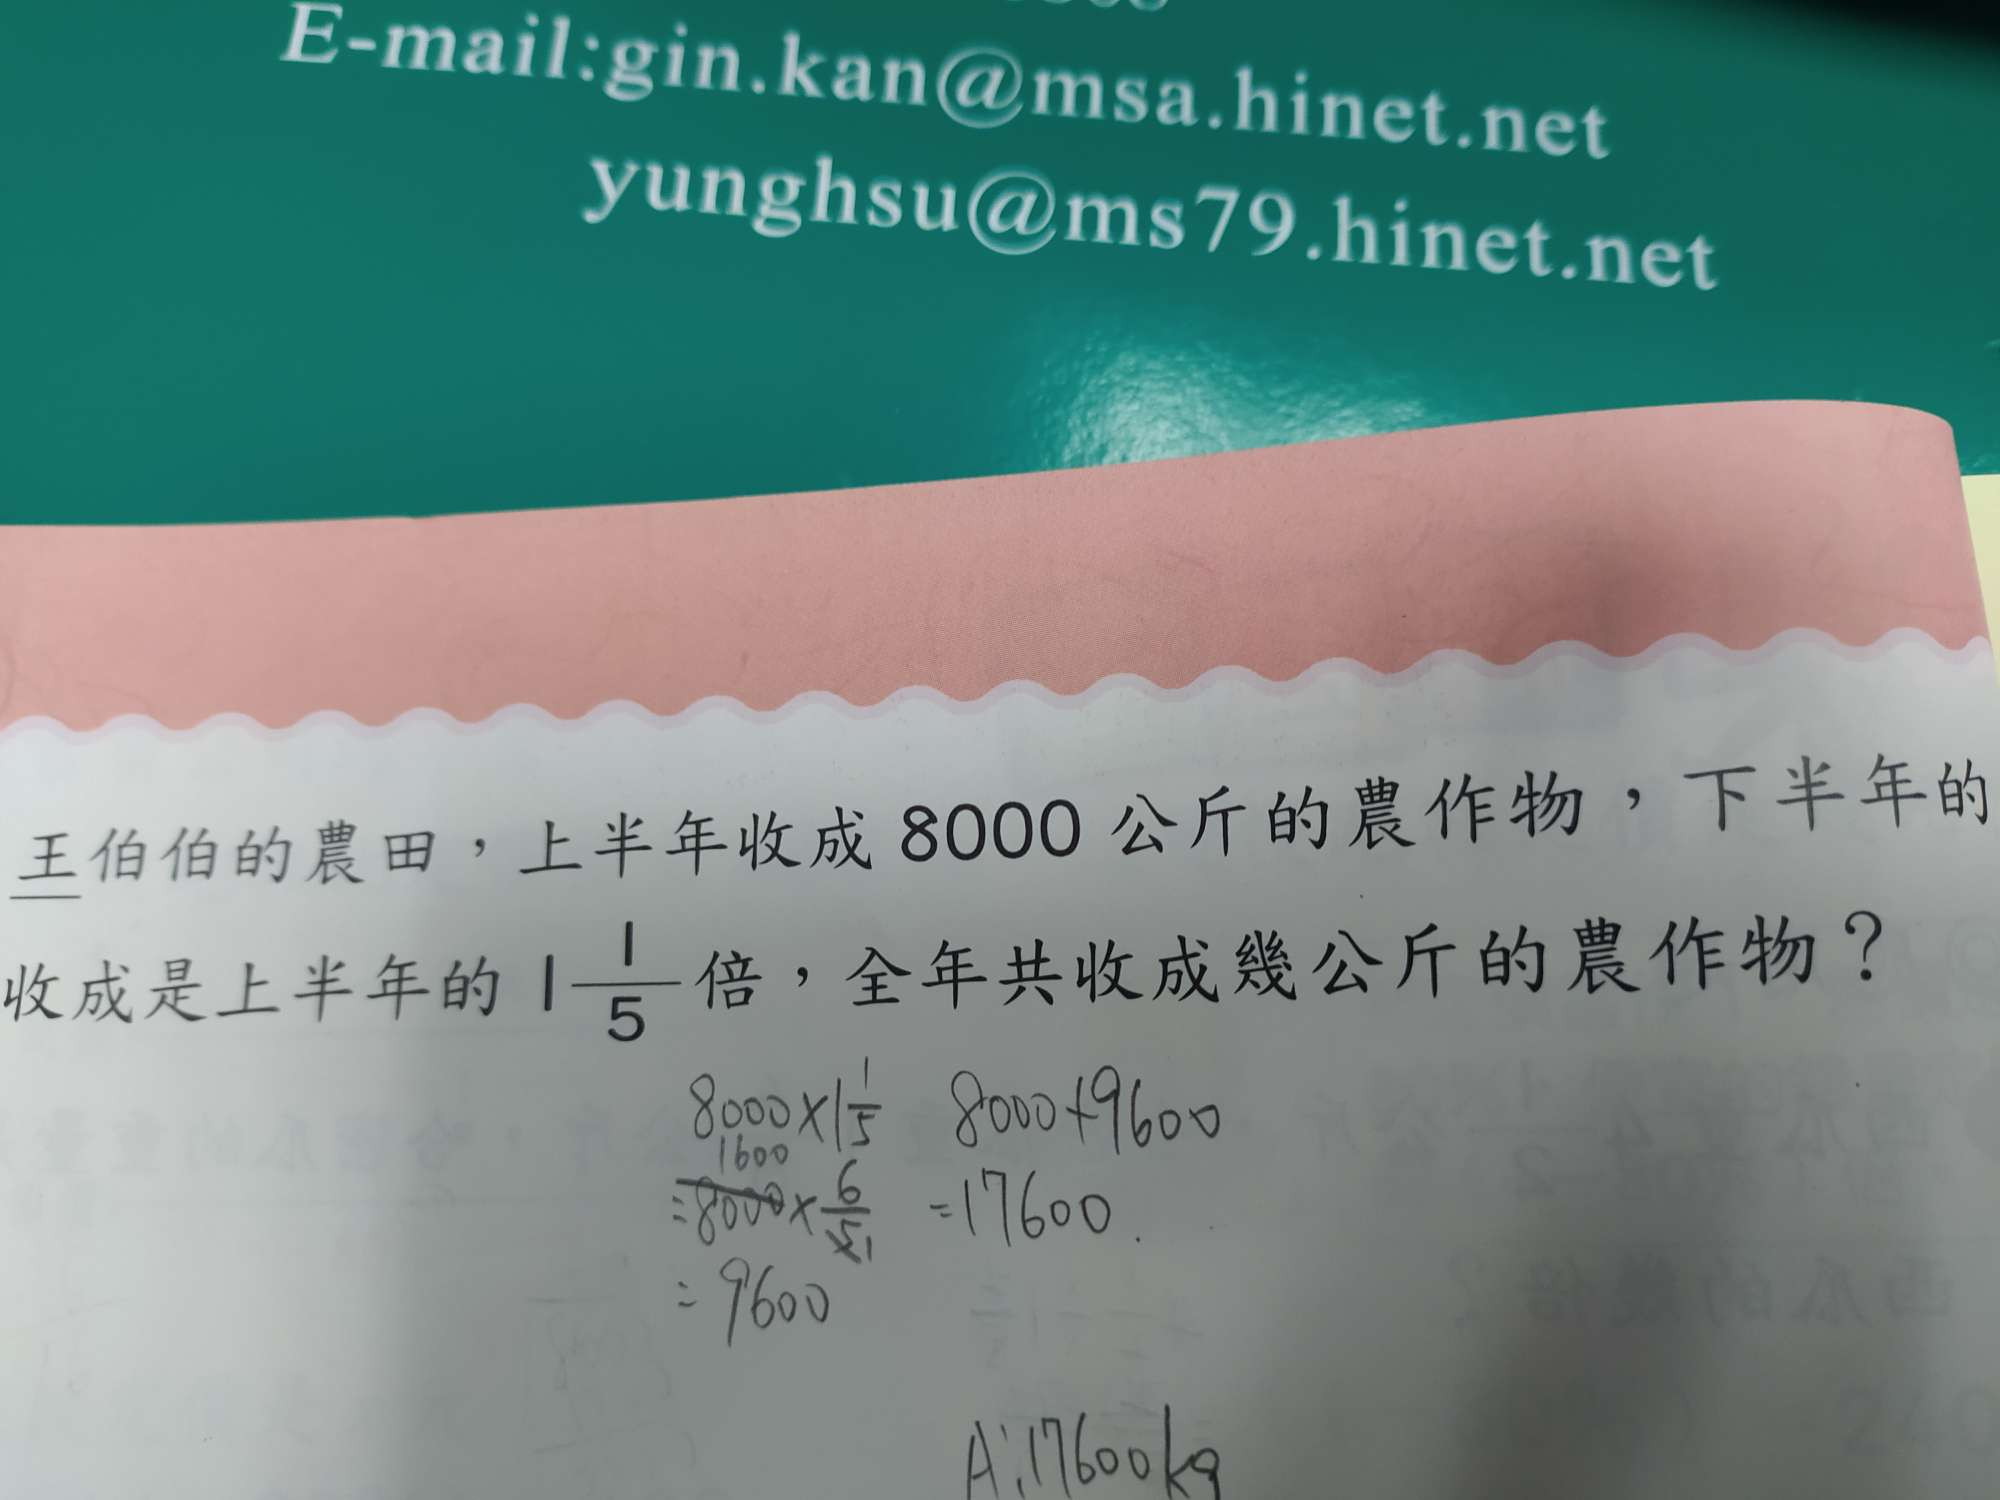 E-mail:gin.kan@msa.hinet.net
yunghsu@ms79.hinet.net
王伯伯的農田，上半年收成 8000 公斤的農作物，下半年的
收成是上半年的 1 1/5 倍，全年共收成幾公斤的農作物？
8000×1 1/5
1600
=8000×6/5 1
=9600
8000+9600
=17600
A:17600kg